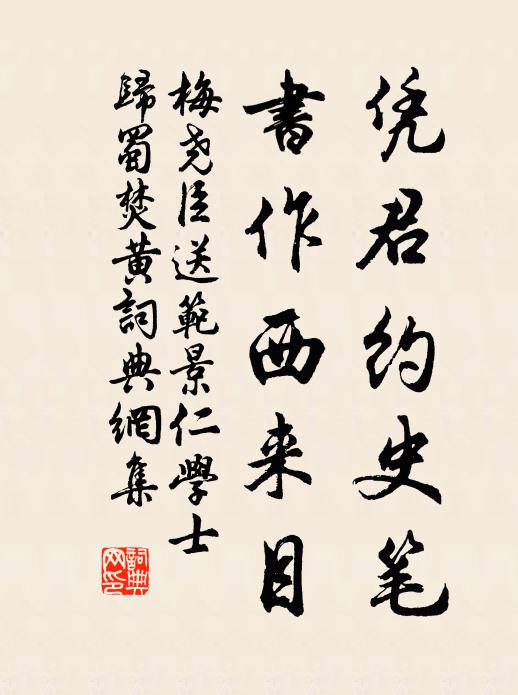 凭君约史笔
書作西来目
梅尧臣送範景仁學士
歸蜀焚黄詞典網集
詞典
网印